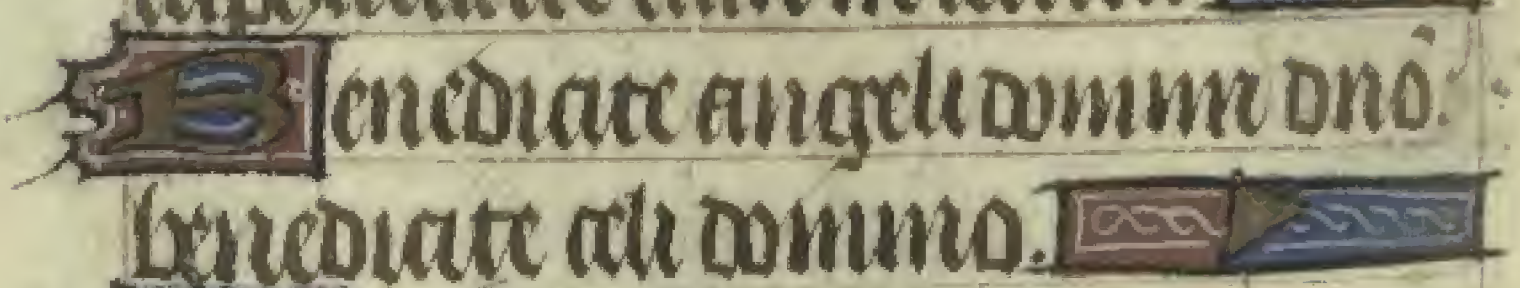 Benedicite angeli domini dnō.
benedicite celi domino.